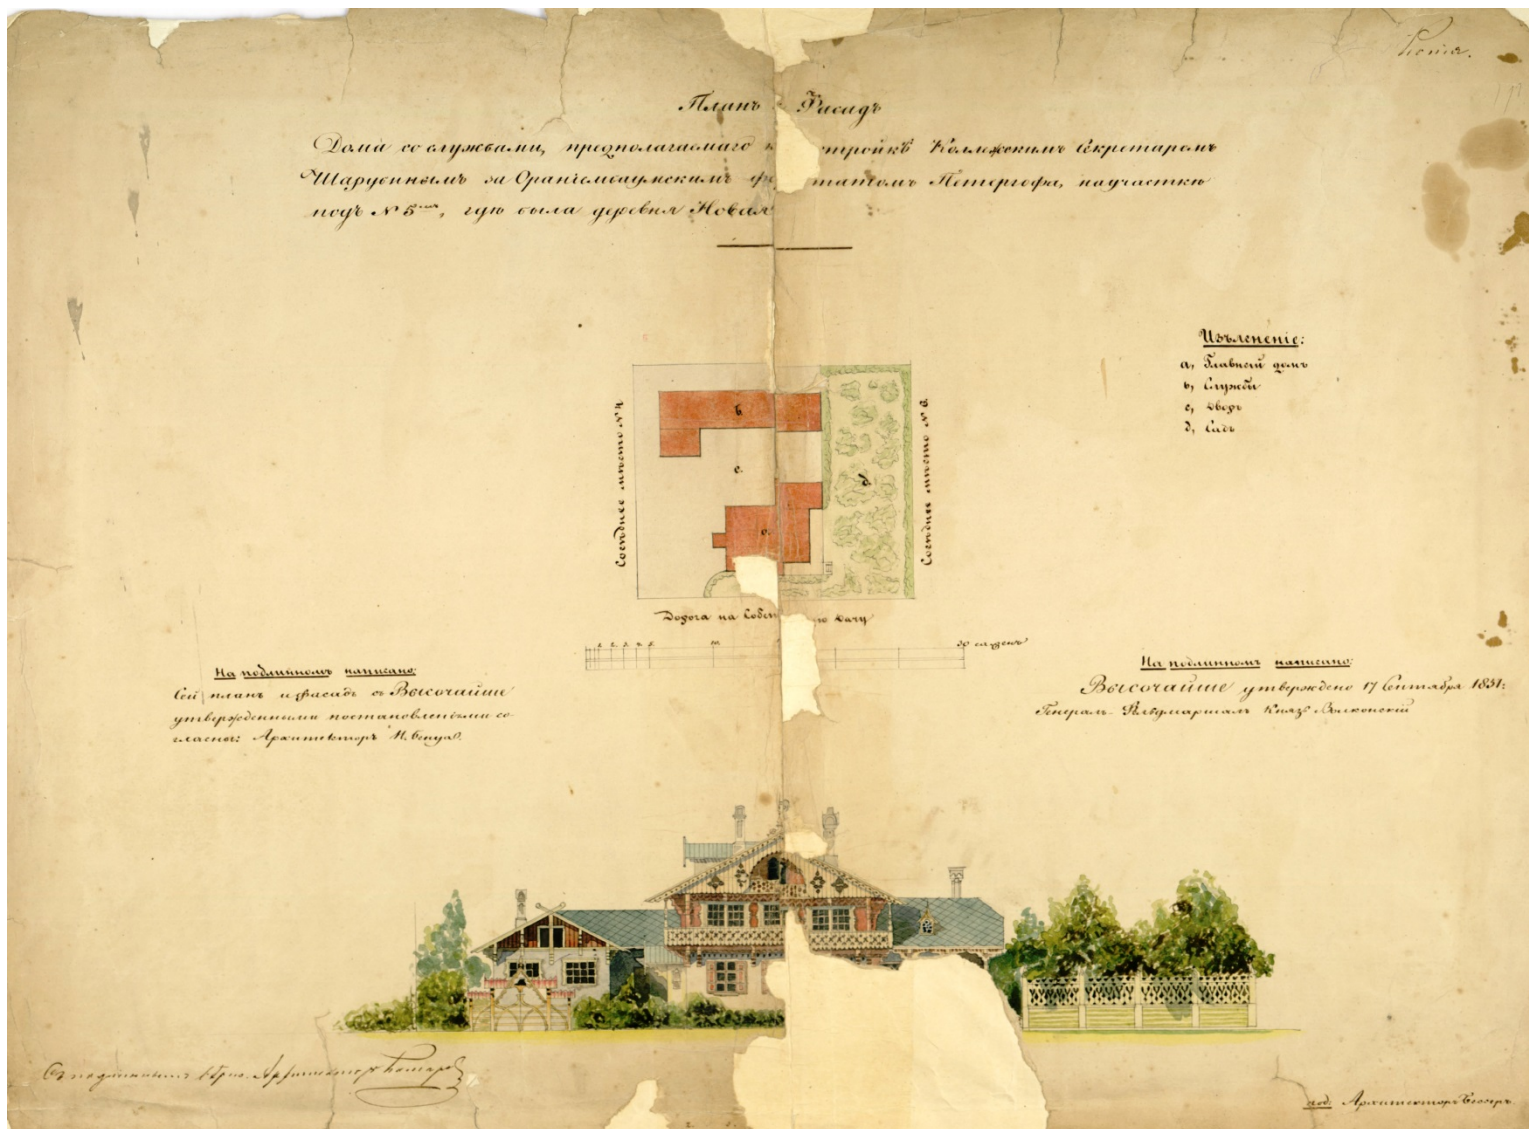 Копія.
Планъ Фасадъ
Дома со службами, предполагаемаго к стройкѣ Коллежскимъ Секретаремъ
Шарубинымъ за Ораніембаумскимъ фо штатомъ Петергофа, на участкѣ
подъ № 5мъ, гдѣ была деревня Новая
Изъясненіе:
a, Главный домъ
b, Службы
c, Дворъ
d, Садъ
b.
c.
d.
a.
Сосѣднее мѣсто № 4.
Сосѣднее мѣсто № 6.
Дорога на Собст ую дачу
1 2 3 4 5 10 30 саженъ
На подлинномъ написано:
Сей планъ и фасадъ съ Высочайше
утвержденными постановленіями со-
гласны: Архитекторъ Н. Бенуа.
На подлинномъ написано:
Высочайше утверждено 17 Сентября 1851:
Генералъ-Фельдмаршалъ Князь Волконскій
Съ подлиннымъ вѣрно. Архитекторъ
под: Архитекторъ